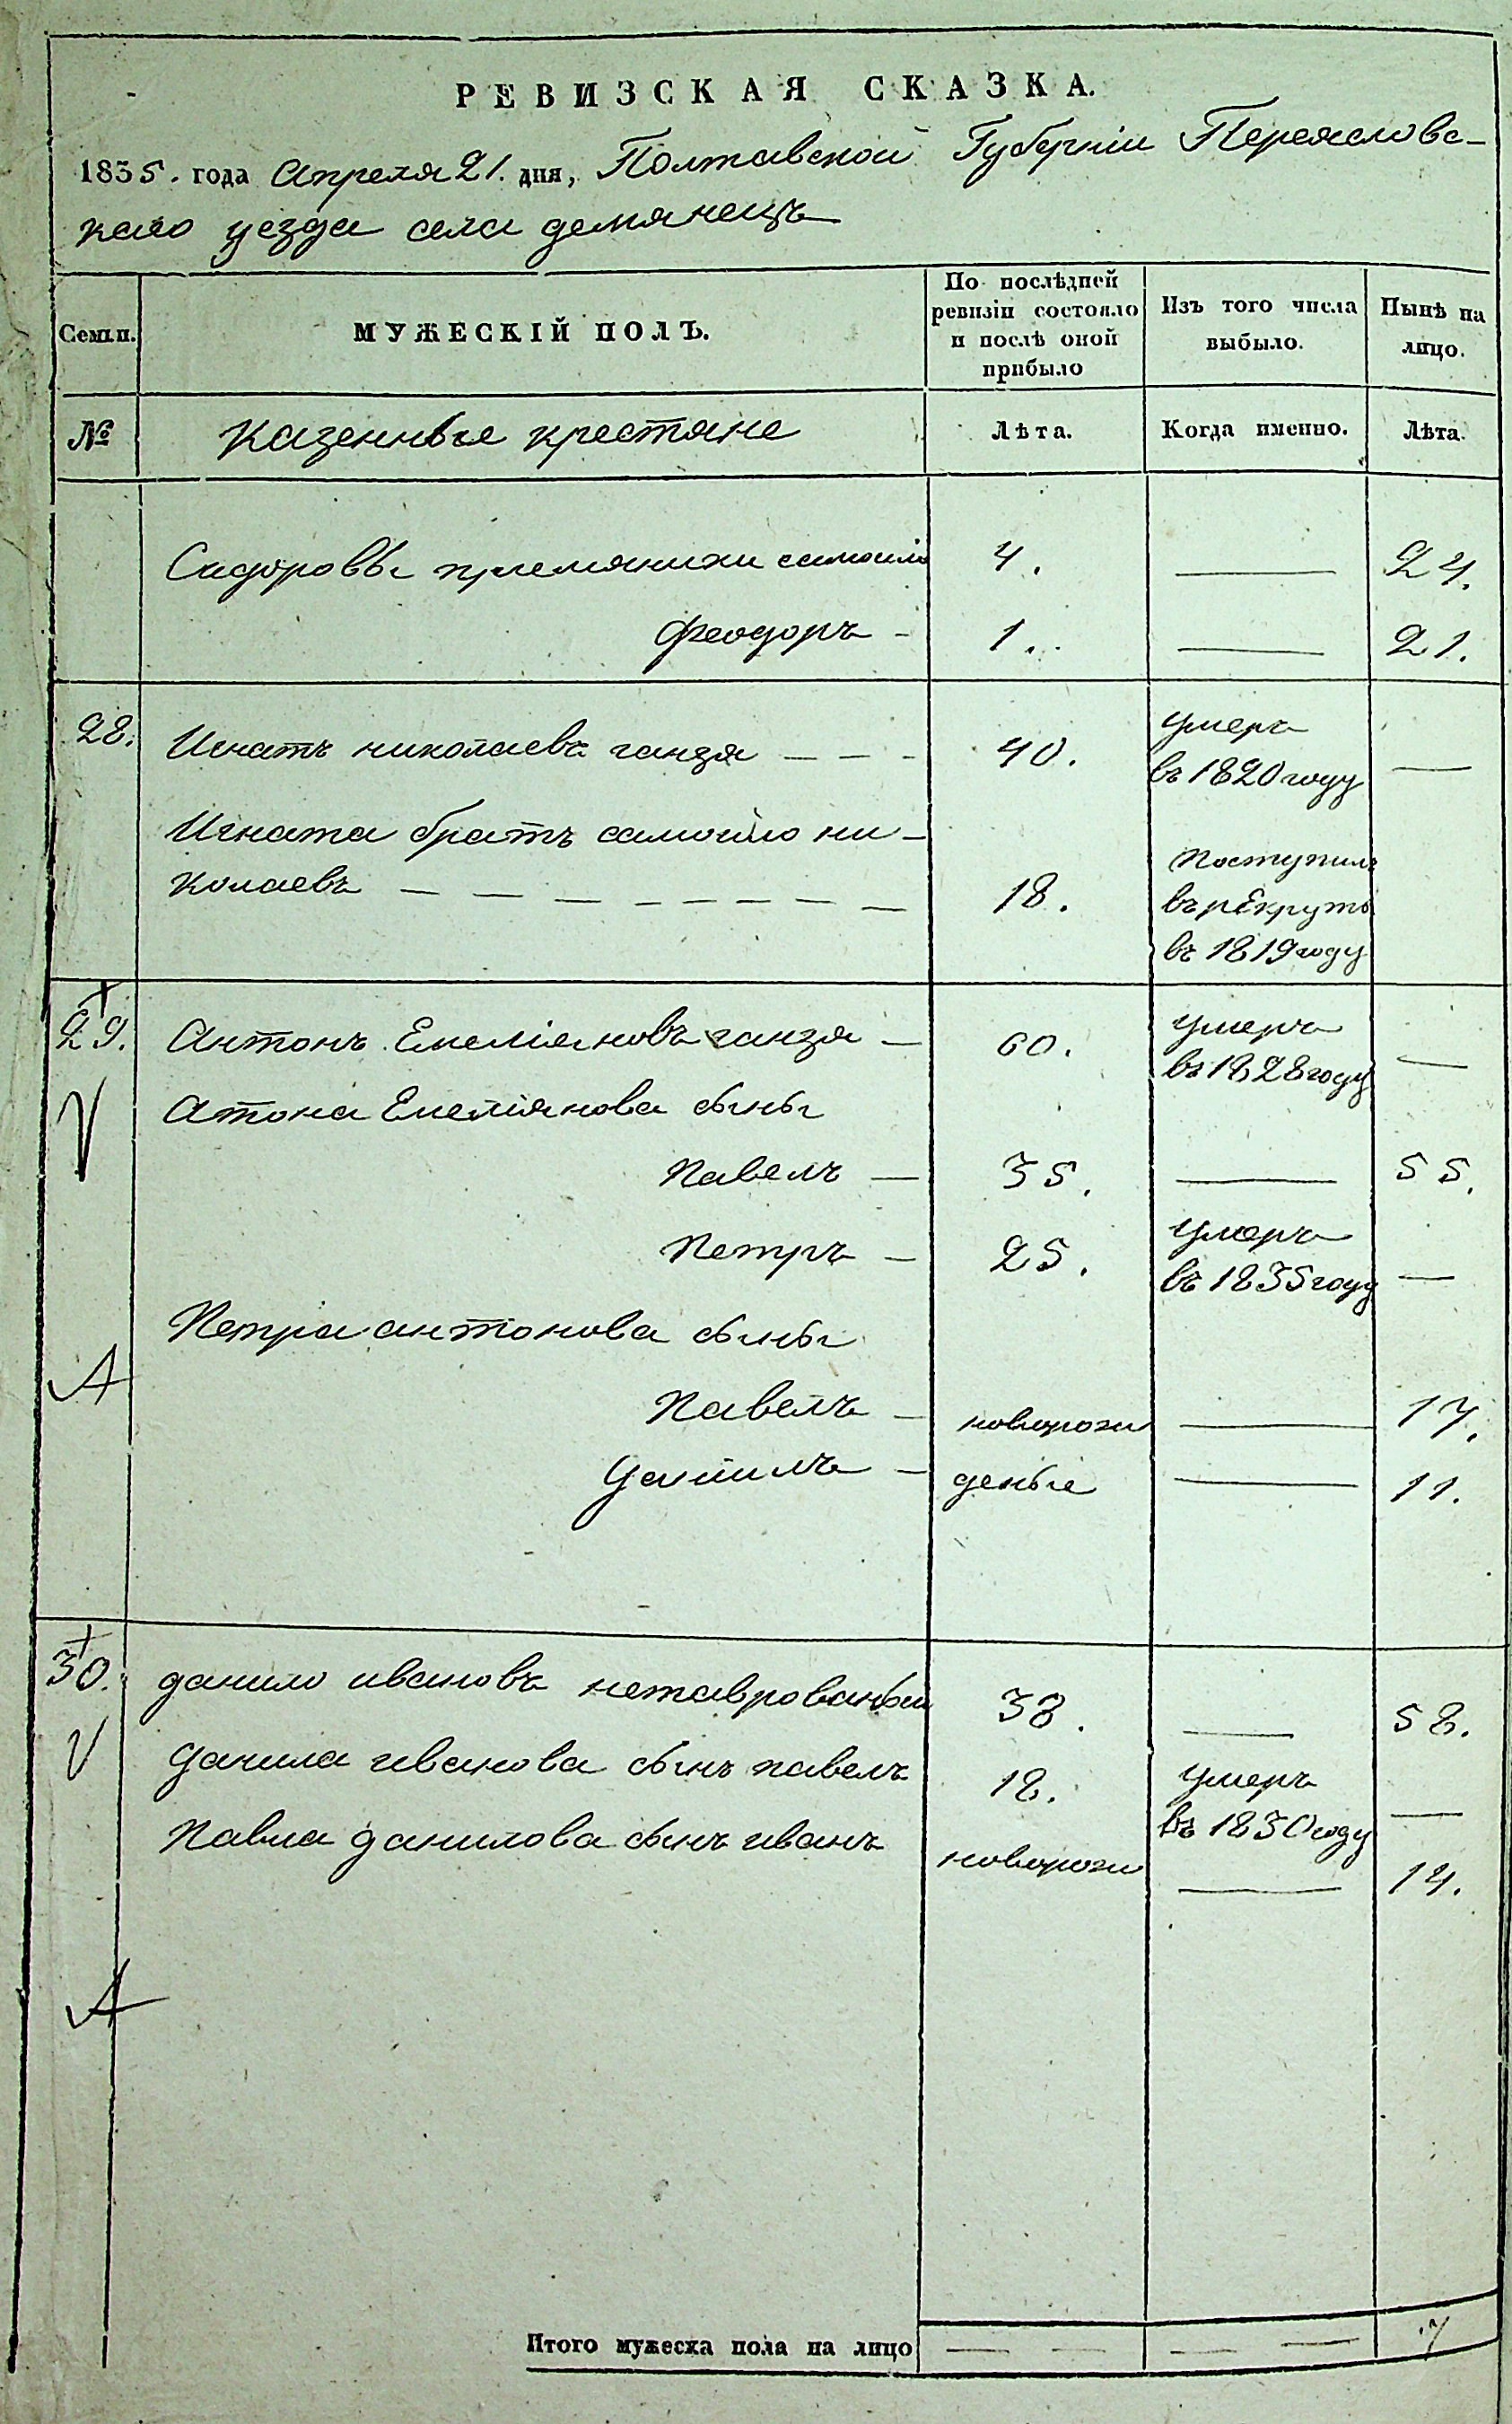 РЕВИЗСКАЯ СКАЗКА.
1835. года Апреля 21. дня, Полтавской Губерніи Переяславс-
каго уезда села демянецъ
Семьи.
МУЖЕСКІЙ ПОЛЪ.
По послѣдней ревизіи состояло и послѣ оной прибыло
Изъ того числа выбыло.
Нынѣ на лицо.
№ Казенные крестяне Лѣта. Когда именно. Лѣта.
Сидоровы племяники самоило 4. — 24.
Феодоръ - 1. — 21.
28. Игнатъ николаевъ ганзя — — - 40. умеръ въ 1820 году —
Игната братъ самойло ни-
колаевъ — — — — — — — — 18. поступилъ въ рекруты въ 1819 году
29. Антонъ Емеліяновъ ганзя — 60. умеръ въ 1828 году —
Атона Емеліянова сыны
Павелъ — 35. — 55.
Петръ — 25. умеръ въ 1835 году —
Петра антонова сыны
Павелъ — новорож — 17.
Данилъ — деные — 11.
30. данило ивановъ нетаврованый 38. — 58.
Данила иванова сынъ павелъ 18. умеръ въ 1830 году —
Павла данилова сынъ иванъ новорож — 14.
Итого мужеска пола на лицо — — — — 7